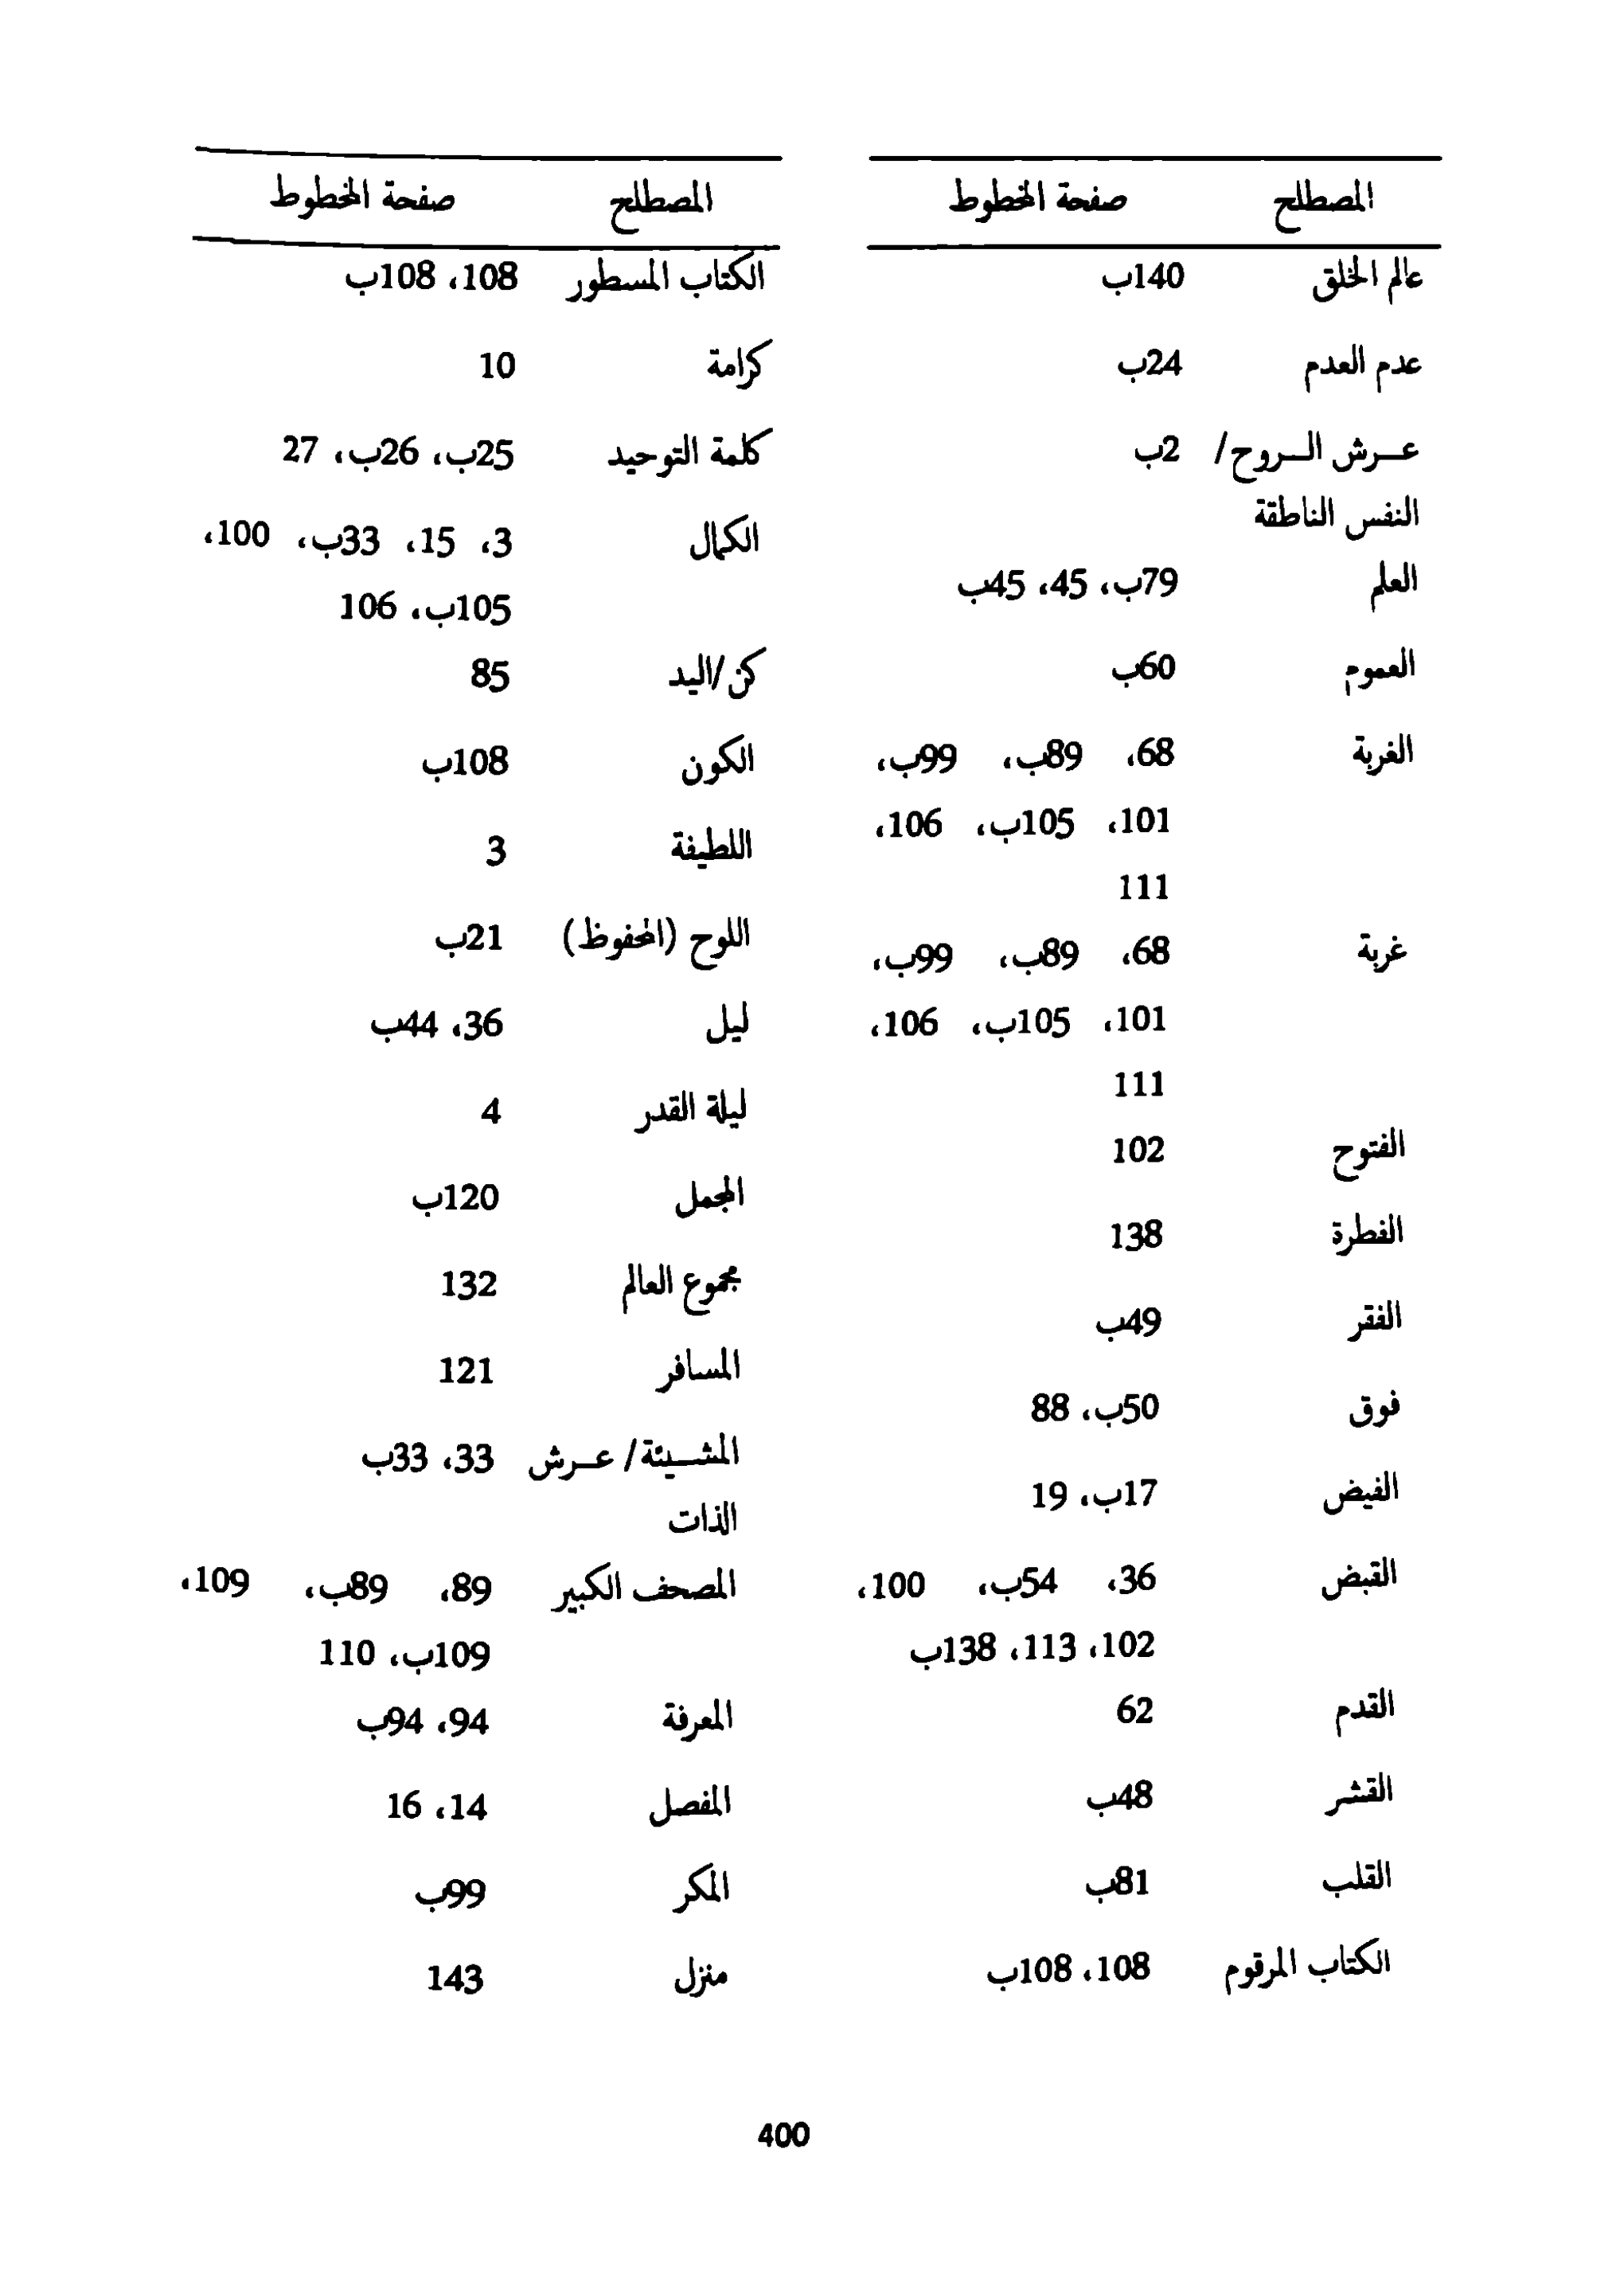 المصطلح صفحة المخطوط
عالم الخلق 140ب
عدم العدم 24ب
عـرش الـروح/ 2ب
النفس الناطقة
العلم 79ب، 45، 45ب
العموم 60ب
الغربة 68، 89ب، 99ب،
101، 105ب، 106،
111
غربة 68، 89ب، 99ب،
101، 105ب، 106،
111
الفتوح 102
الفطرة 138
الفقر 49ب
فوق 50ب، 88
الفيض 17ب، 19
القبض 36، 54ب، 100،
102، 113، 138ب
القدم 62
القشر 48ب
القلب 81ب
الكتاب المرقوم 108، 108ب
المصطلح صفحة المخطوط
الكتاب المسطور 108، 108ب
كرامة 10
كلمة التوحيد 25ب، 26ب، 27
الكمال 3، 15، 33ب، 100،
105ب، 106
كن/اليد 85
الكون 108ب
اللطيفة 3
اللوح (المحفوظ) 21ب
ليل 36، 44ب
ليلة القدر 4
المجمل 120ب
مجموع العالم 132
المسافر 121
المشـيئة/ عـرش 33، 33ب
الذات
المصحف الكبير 89، 89ب، 109،
109ب، 110
المعرفة 94، 94ب
المفصل 14، 16
المكر 99ب
منزل 143
400